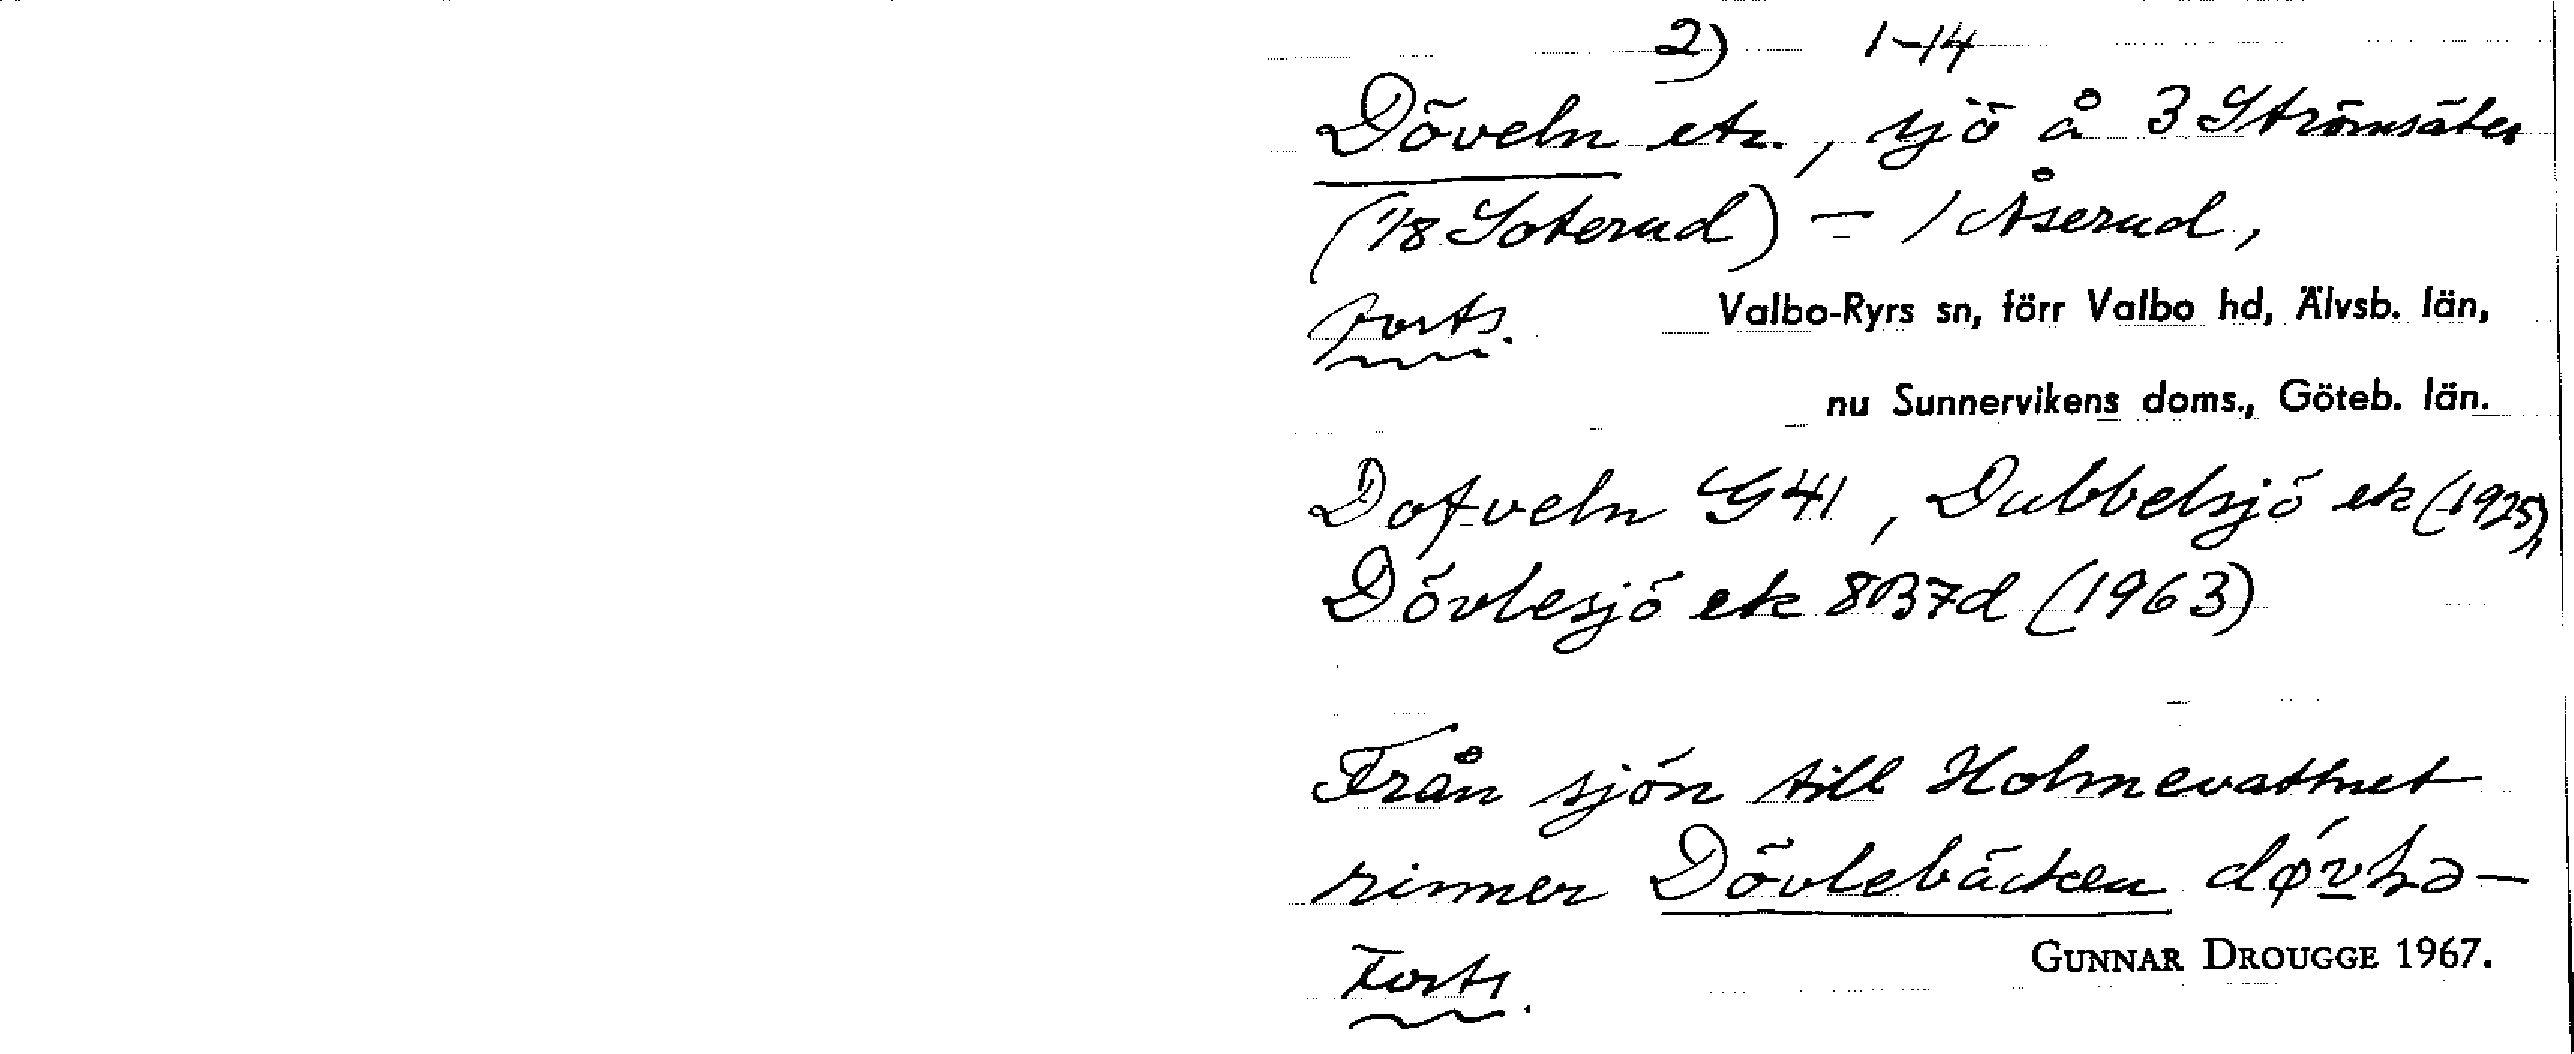 2) 1-14
Döveln etc., sjö å 3 Strömsäter
(1/8 Soterud) – 1 Åserud,
forts. Valbo-Ryrs sn, förr Valbo hd, Älvsb. län,
nu Sunnervikens doms., Göteb. län.
Dofveln G41, Dubbelsjö ek (1925),
Dövlesjö ek 8B7d (1963)
Från sjön till Holmevattnet
rinner Dövlebäcken
Forts. GUNNAR DROUGGE 1967.